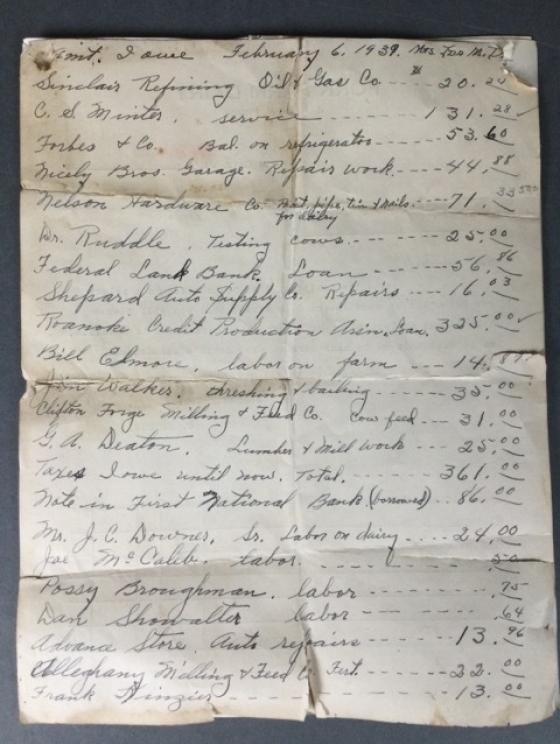 Amt. I owe February 6, 1939. Mrs.
Sinclair Refining Oil & Gas Co ---- $ 20.24
C. S. Minter, service ---- 131.28
Forbes & Co. Bal. on refrigerator ---- 53.60
Nicely Bros. Garage. Repair work ---- 44.88
Nelson Hardware Co. Paint, pipe, tin & nails ---- 71.33
for dairy
Dr. Ruddle, Testing cows --- 25.00
Federal Land Bank, Loan ---- 56.86
Shepard Auto Supply Co. Repairs --- 16.03
Roanoke Credit Production Ass'n. Loan. 325.00
Bill Elmore, labor on farm --- 14.
Jim Walker, threshing & bailing ---- 35.00
Clifton Forge Milling & Feed Co. Cow feed --- 31.00
G. A. Deaton, Lumber & Mill work --- 25.00
Taxes I owe until now. Total. ---- 361.00
Note in First National Bank (borrowed) -- 86.00
Mr. J. C. Downer, Sr. Labor on dairy --- 24.00
Joe McCaleb, labor. ---- .50
Possy Broughman, labor ---- .75
Dan Showalter labor ---- .64
Advance Store. Auto repairs ---- 13.96
Alleghany Milling & Feed Co. Fert. ---- 22.00
Frank ---- 13.00